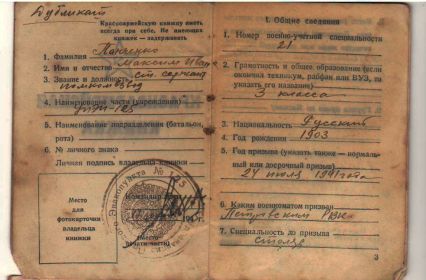 Дубликат
Красноармейскую книжку иметь
всегда при себе. Не имеющих
книжек — задерживать
1. Фамилия
2. Имя и отчество Максим Иван
3. Звание и должность ст. сержант
помкомвзвод
4. Наименование части (учреждения)
5. Наименование подразделения (батальон,
рота)
6. № личного знака
Личная подпись владельца книжки
Место
для
фотокарточки
владельца
книжки
Командир части
(Место
печати части)
I. Общие сведения
1. Номер военно-учетной специальности
21
2. Грамотность и общее образование (если
окончил техникум, рабфак или ВУЗ, то
указать его название)
3 класса
3. Национальность Русский
4. Год рождения 1903
5. Год призыва (указать также — нормаль-
ный или досрочный призыв)
24 июля 1941 года
6. Каким военкоматом призван
Петровским
7. Специальность до призыва
столяр
3